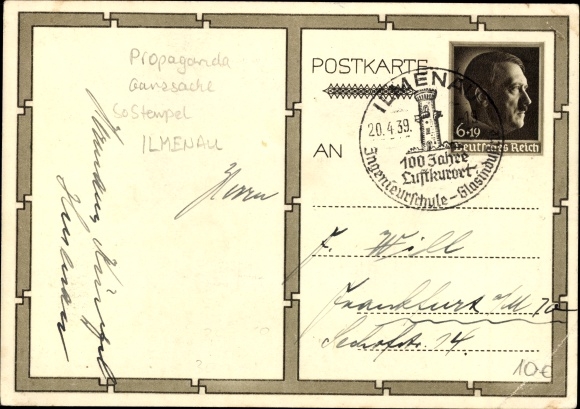 Propaganda
Ganzsache
SoStempel
ILMENAU
Herrn
POSTKARTE
AN
ILMENAU
20.4.39.
100 Jahre
Luftkurort
Ingenieurschule - Glasindustrie
6+19
Deutsches Reich
F. Will
Frankfurt a/M 70
14.
10€